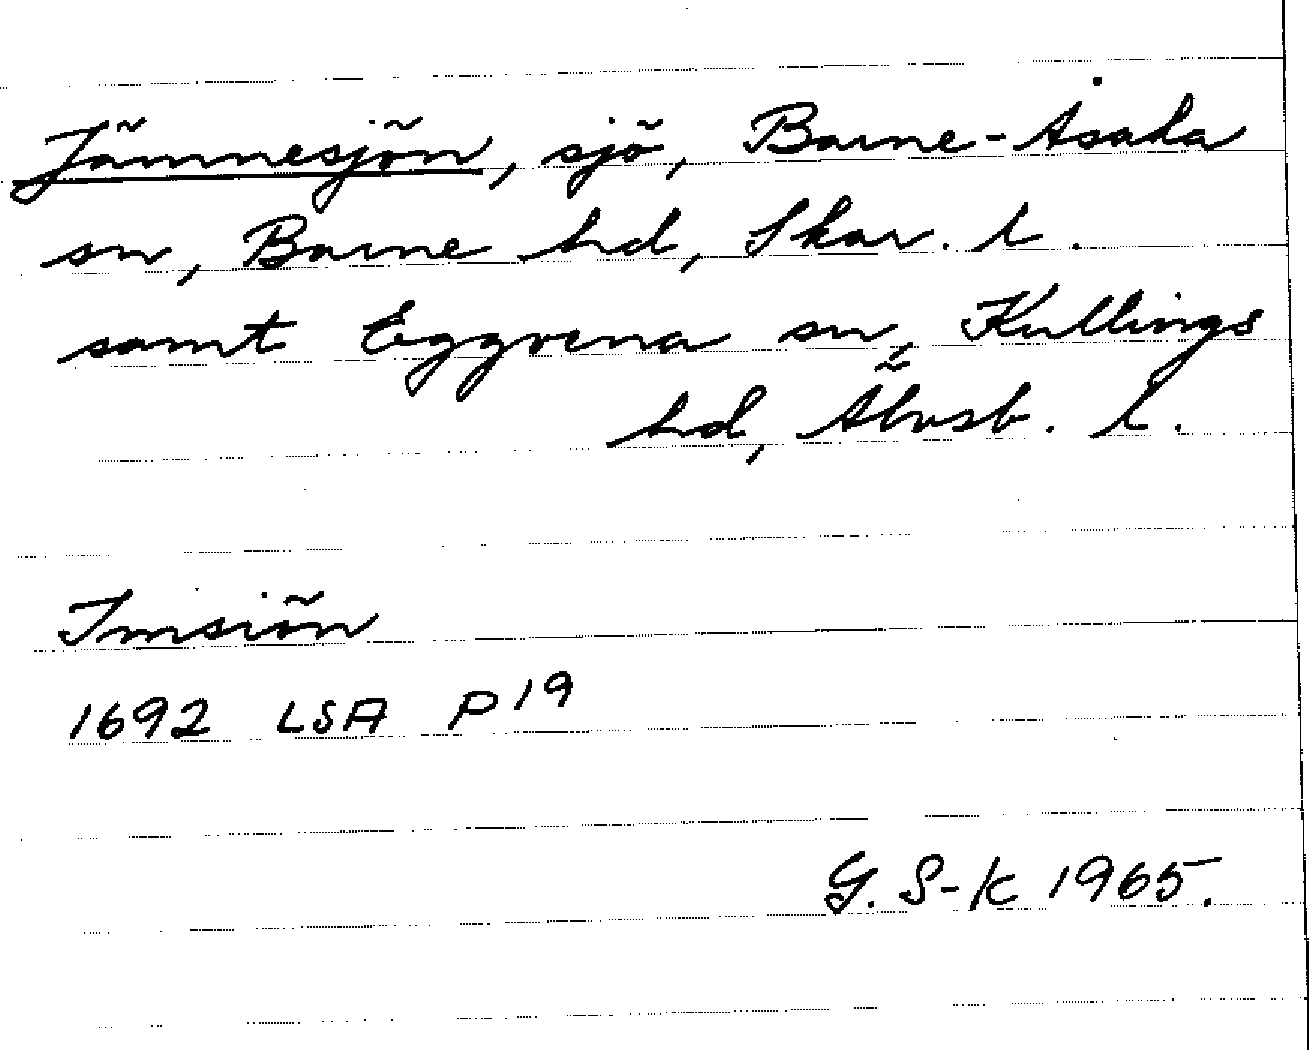 Jämnesjön, sjö, Barne-Åsaka
sn, Barne hd, Skar. l.
samt Eggvena sn, Kullings
hd, Älvsb. l.
Imsiön
1692 LSA P 19
G. S-K 1965.